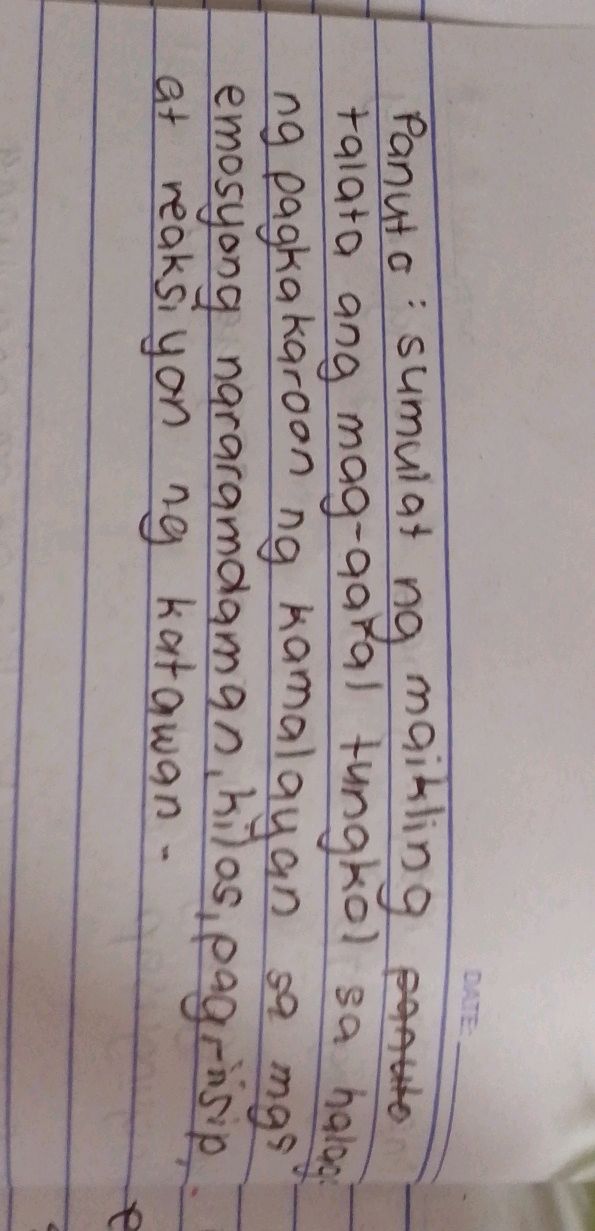 DATE:
Panuto : sumulat ng maikling
talata ang mag-aaral tungkol sa halaga
ng pagkakaroon ng kamalayan sa mga
emosyong nararamdaman, kilos, pagriisip,
at reaksiyon ng katawan.